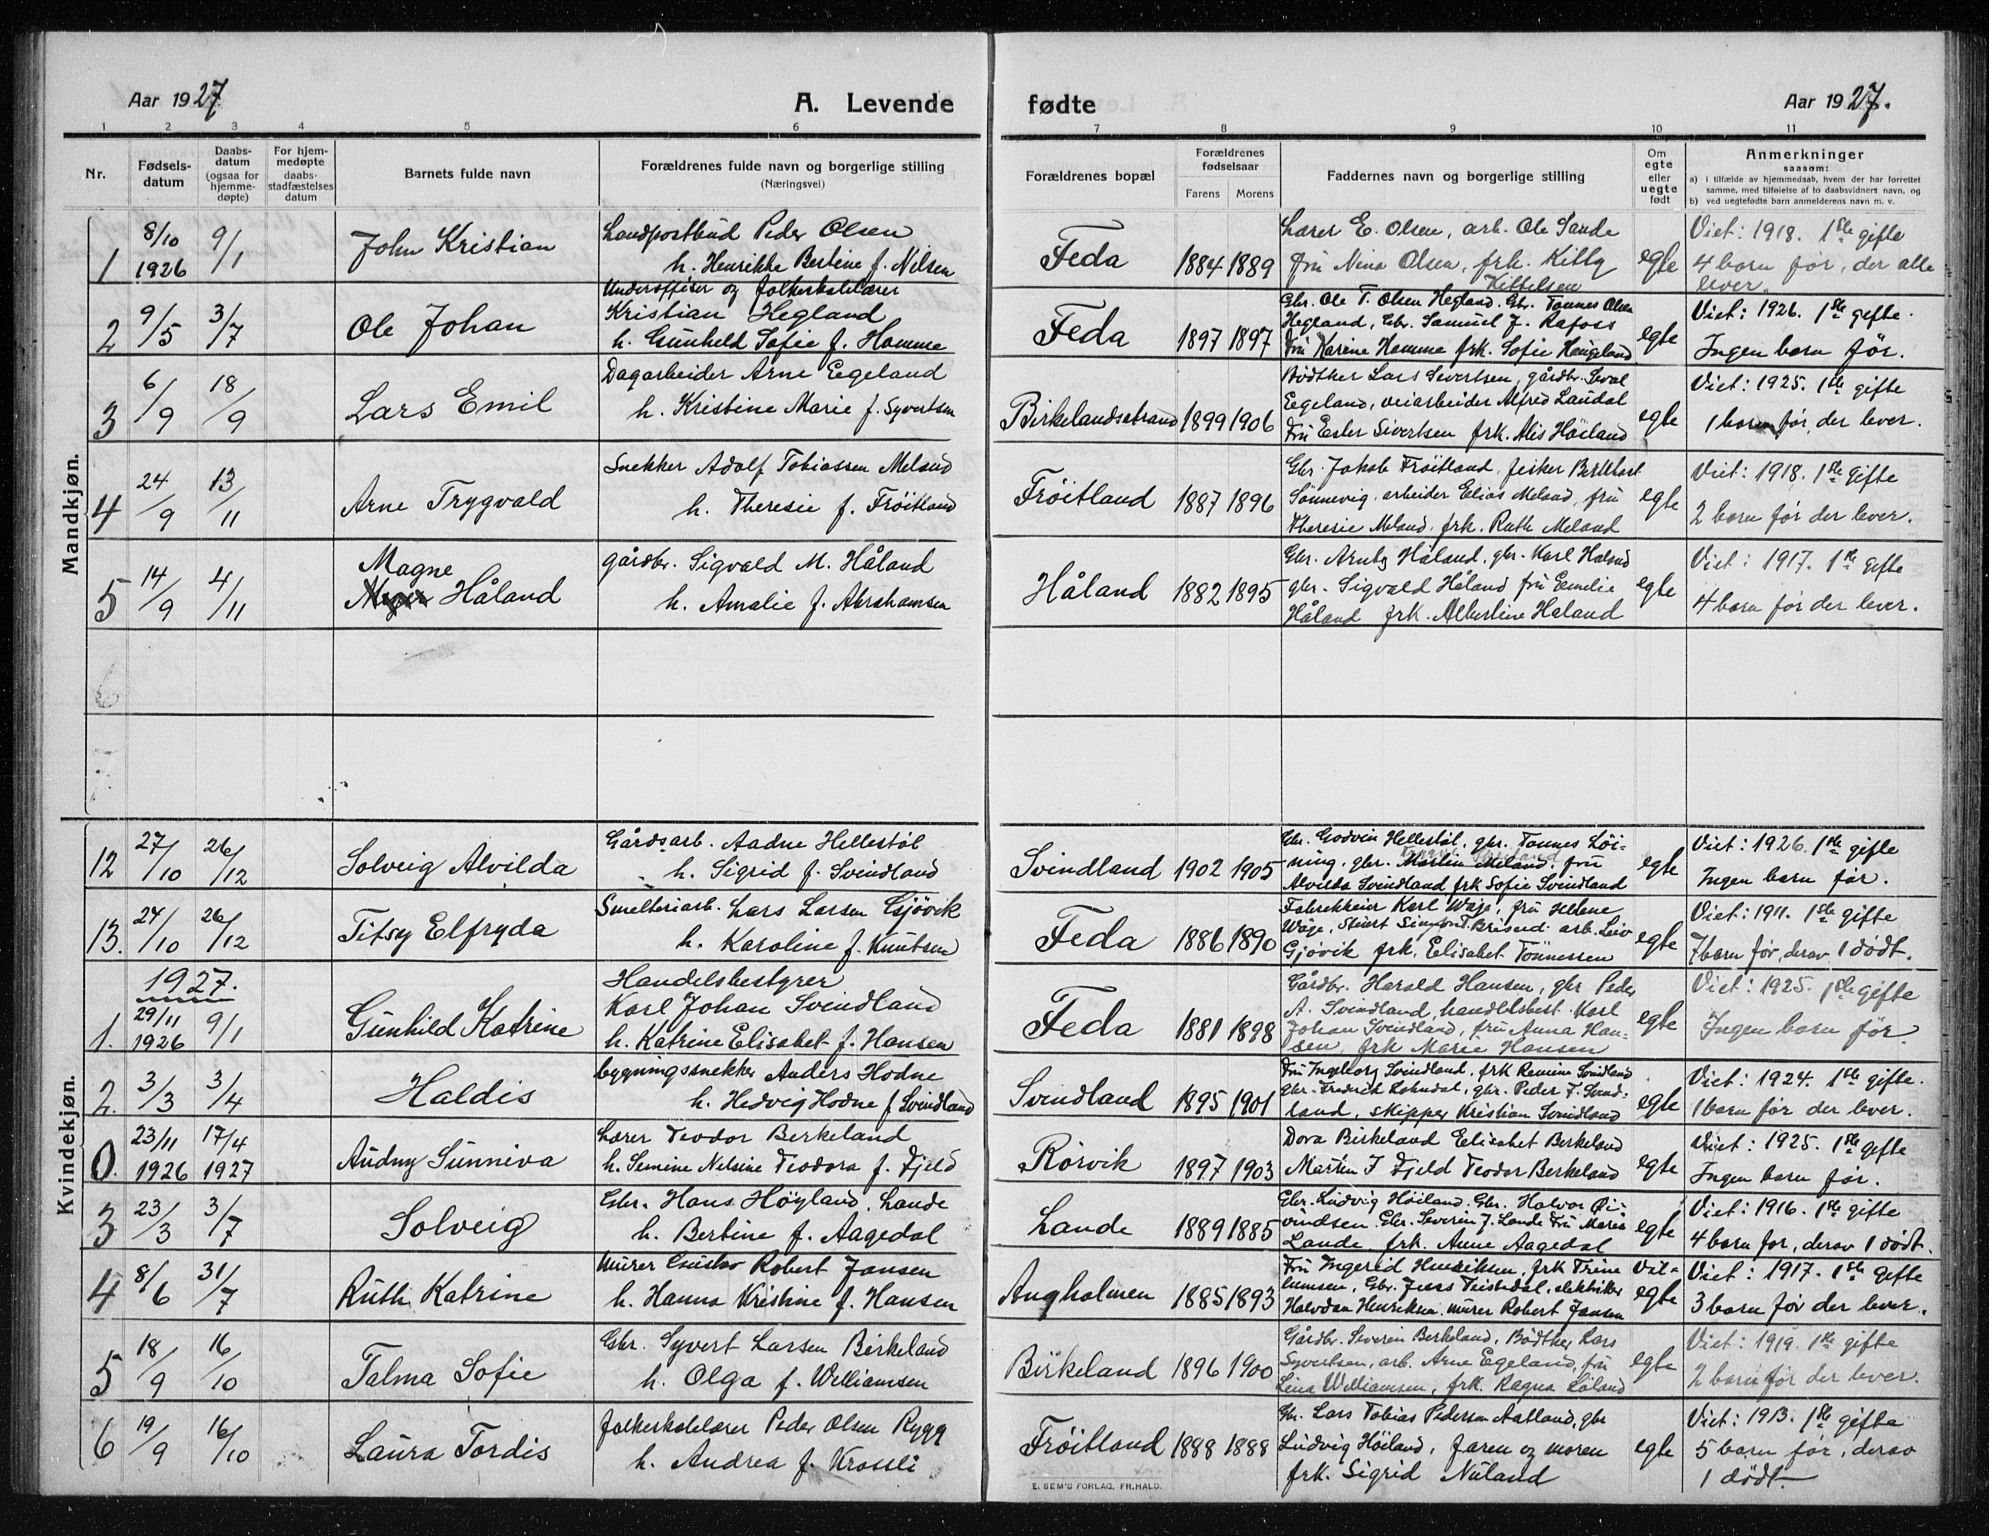 Aar 1927
A. Levende
fødte
Aar 1927.
1 2 3 4 5 6 7 8 9 10 11
Nr.
Fødsels-
datum
Daabs-
datum
(ogsaa for
hjemme-
døpte)
For hjem-
medøpte
daabs-
stadfæstelses
datum
Barnets fulde navn
Forældrenes fulde navn og borgerlige stilling
(Næringsvei)
Forældrenes bopæl
Forældrenes
fødselsaar
Farens Morens
Faddernes navn og borgerlige stilling
Om
egte
eller
uegte
født
Anmerkninger
saasom:
a) i tilfælde av hjemmedaab, hvem der har forrettet
samme, med tilføielse af to daabsvidners navn, og
b) ved uegtefødte barn anmelderens navn m. v.
Mandkjøn.
1 8/10 1926 9/1 John Kristian
Landpostbud Peder Olsen
h. Henrikke Bertine f. Nilsen
Feda 1884 1889
Lærer E. Olsen, arb. Ole Sande
fru Nina Olsen, frk. Kitty
Kittelsen
egte
Viet: 1918. 1ste gifte
4 barn før, der alle
lever.
2 9/5 3/7 Ole Johan
Underoffiser og folkeskolelærer
Kristian Hegland
h. Gunhild Sofie f. Homme
Feda 1897 1897
Gbr. Ole T. Olsen Hegland, Gbr. Tønnes Olsen
Hegland, Gbr. Samuel J. Rafoss
Fru Karine Homme frk. Sofie Haugeland
egte
Viet: 1926. 1ste gifte.
Ingen barn før.
3 6/9 18/9 Lars Emil
Dagarbeider Arne Eegeland
h. Kristine Marie f. Syvertsen
Birkelandsstrand 1899 1906
Bødtker Lars Sivertsen, gårdbr. Seval
Eegeland, veiarbeider Alfred Landal
Fru Ester Sivertsen frk. Alis Høiland
egte
Viet: 1925. 1ste gifte
1 barn før, der lever.
4 24/9 13/11 Arne Trygvald
Snekker Adolf Tobiassen Meland
h. Theresie f. Frøitland
Frøitland 1887 1896
Gbr. Jakob Frøitland, fisker Berthart
Sønnevig, arbeider Elias Meland, fru
Theresie Meland, frk. Ruth Meland
egte
Viet: 1918. 1ste gifte
2 barn før der lever.
5 14/9 4/11 Magne
Håland
gårdbr. Sigvald M. Håland
h. Amalie f. Abrahamsen
Håland 1882 1895
Gbr. Arnt Håland, gbr. Karl Håland
gbr. Sigvald Håland fru Emelie
Håland frk. Albertine Håland
egte
Viet: 1917. 1ste gifte
4 barn før der lever.
6
Kvindekjøn.
12 27/10 26/12 Solveig Alvilda
Gårdsarb. Aadne Hellestøl
h. Sigrid f. Svindland
Svindland 1902 1905
Gbr. Godvin Hellestøl, gbr. Tønnes Løi-
ning, gbr. Martin Meland, fru
Alvilda Svindland frk Sofie Svindland
egte
Viet: 1926. 1ste gifte
Ingen barn før.
13. 24/10 26/12 Titsy Elfryda
Smelteriarb. Lars Larsen Gjøvik
h. Karoline f. Knutsen
Feda 1886 1890
Fabrikkeier Karl Wåje, fru Helene
Wåge, Simon T. Brisend. arb. Leiv
Gjøvik frk. Elisabet Tønnessen
egte
Viet: 1911. 1ste gifte
7 barn før, derav 1 dødt.
1927.
1. 29/11 1926 9/1 Gunhild Katrine
Handelsbestyrer
Karl Johan Svindland
h. Katrine Elisabet f. Hansen
Feda 1881 1898
Gårdbr. Harald Hansen, gbr Peder
A. Svindland, handelsbest. Karl
Johan Svindland, fru Anna Han-
sen, frk Marie Hansen
egte
Viet: 1925. 1ste gifte
Ingen barn før.
2. 3/3 3/4 Haldis
bygningssnekker Anders Hodne
h. Hedvig Hodne f. Svindland
Svindland 1895 1901
Fru Ingeborg Svindland, frk Ramina Svindland
Gbr. Fredrich Lohndal, gbr. Peder F. Svind-
land, skipper Kristian Svindland
egte
Viet: 1924. 1ste gifte.
1 barn før der lever.
0. 23/11 1926 17/4 1927 Audny Sunniva
Lærer Teodor Berkeland
h. Semine Nelsine Teodora f. Fjeld
Rørvik 1897 1903
Dora Birkeland Elisabet Berkeland
Marten J Fjeld Teodor Berkeland
egte
Viet: 1925. 1ste gifte
Ingen barn før.
3 23/3 3/7 Solveig
Gbr. Hans Høyland, Lande
h. Bertine f. Aagedal
Lande 1889 1885
Gbr. Ludvig Høiland. Gbr. Halvor Øi-
vindsen. Gbr. Severin J. Lande Fru Marie
Lande frk. Anne Aagedal
egte
Viet: 1916. 1ste gifte
4 barn før, derav 1 dødt.
4 8/6 31/7 Ruth Katrine
Murer Gustav Robert Jansen
h. Hanna Kristine f. Hansen
Angholmen 1885 1893
Fru Ingerid Henriksen, frk Trine Vil-
lumsen, Gbr. Jens Teistedal, elektriker
Halvdan Henriksen. murer Robert Jansen
egte
Viet: 1917. 1ste gifte
3 barn før der lever.
5 18/9 16/10 Talma Sofie
Gbr. Syvert Larsen Birkeland
h. Olga f. Williamsen
Birkeland 1896 1900
Gårdbr. Severin Berkeland, Bødtker Lars
Syvertsen, arb. Arne Eegeland, fru
Lina Williamsen, frk. Ragna Løland
egte
Viet: 1919. 1ste gifte
2 barn før der lever.
6 19/9 16/10 Laura Tordis
folkeskolelærer Peder Olsen Rygg
h. Andrea f. Krossli
Frøitland 1888 1888
Gbr. Lars Tobias Pedersen Aatland, gbr
Ludvig Høiland, faren og moren
frk. Sigrid Nuland
egte
Viet: 1913. 1ste gifte
5 barn før, derav
1 dødt.
E. SEM'S FORLAG, FR.HALD.